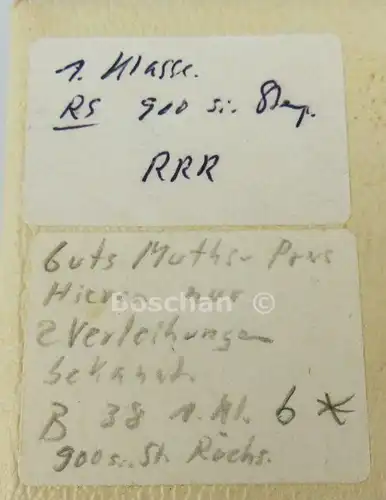 1. Klasse.
RS 900 si. Stemp.
RRR
Guts Muths- Preis
Hierzu nur
2 Verleihungen
bekannt.
B 38 1. Kl. 6 *
900 si. St. Rücks.
Boschan ©